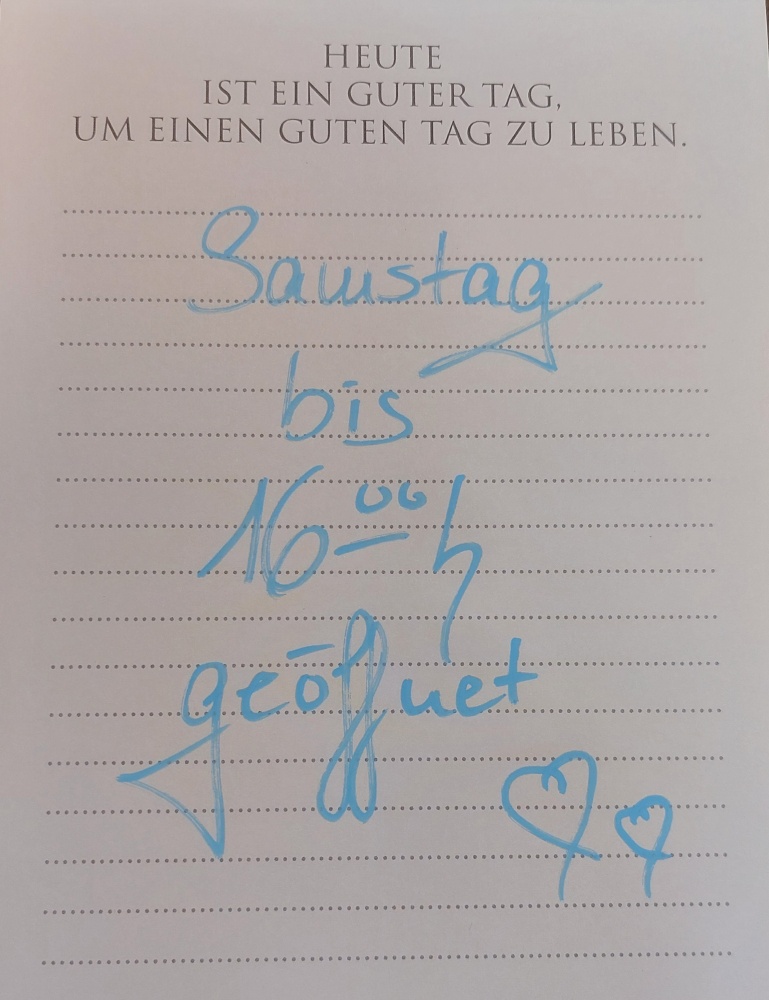 HEUTE
IST EIN GUTER TAG,
UM EINEN GUTEN TAG ZU LEBEN.
Samstag
bis
16 00 h
geöffnet